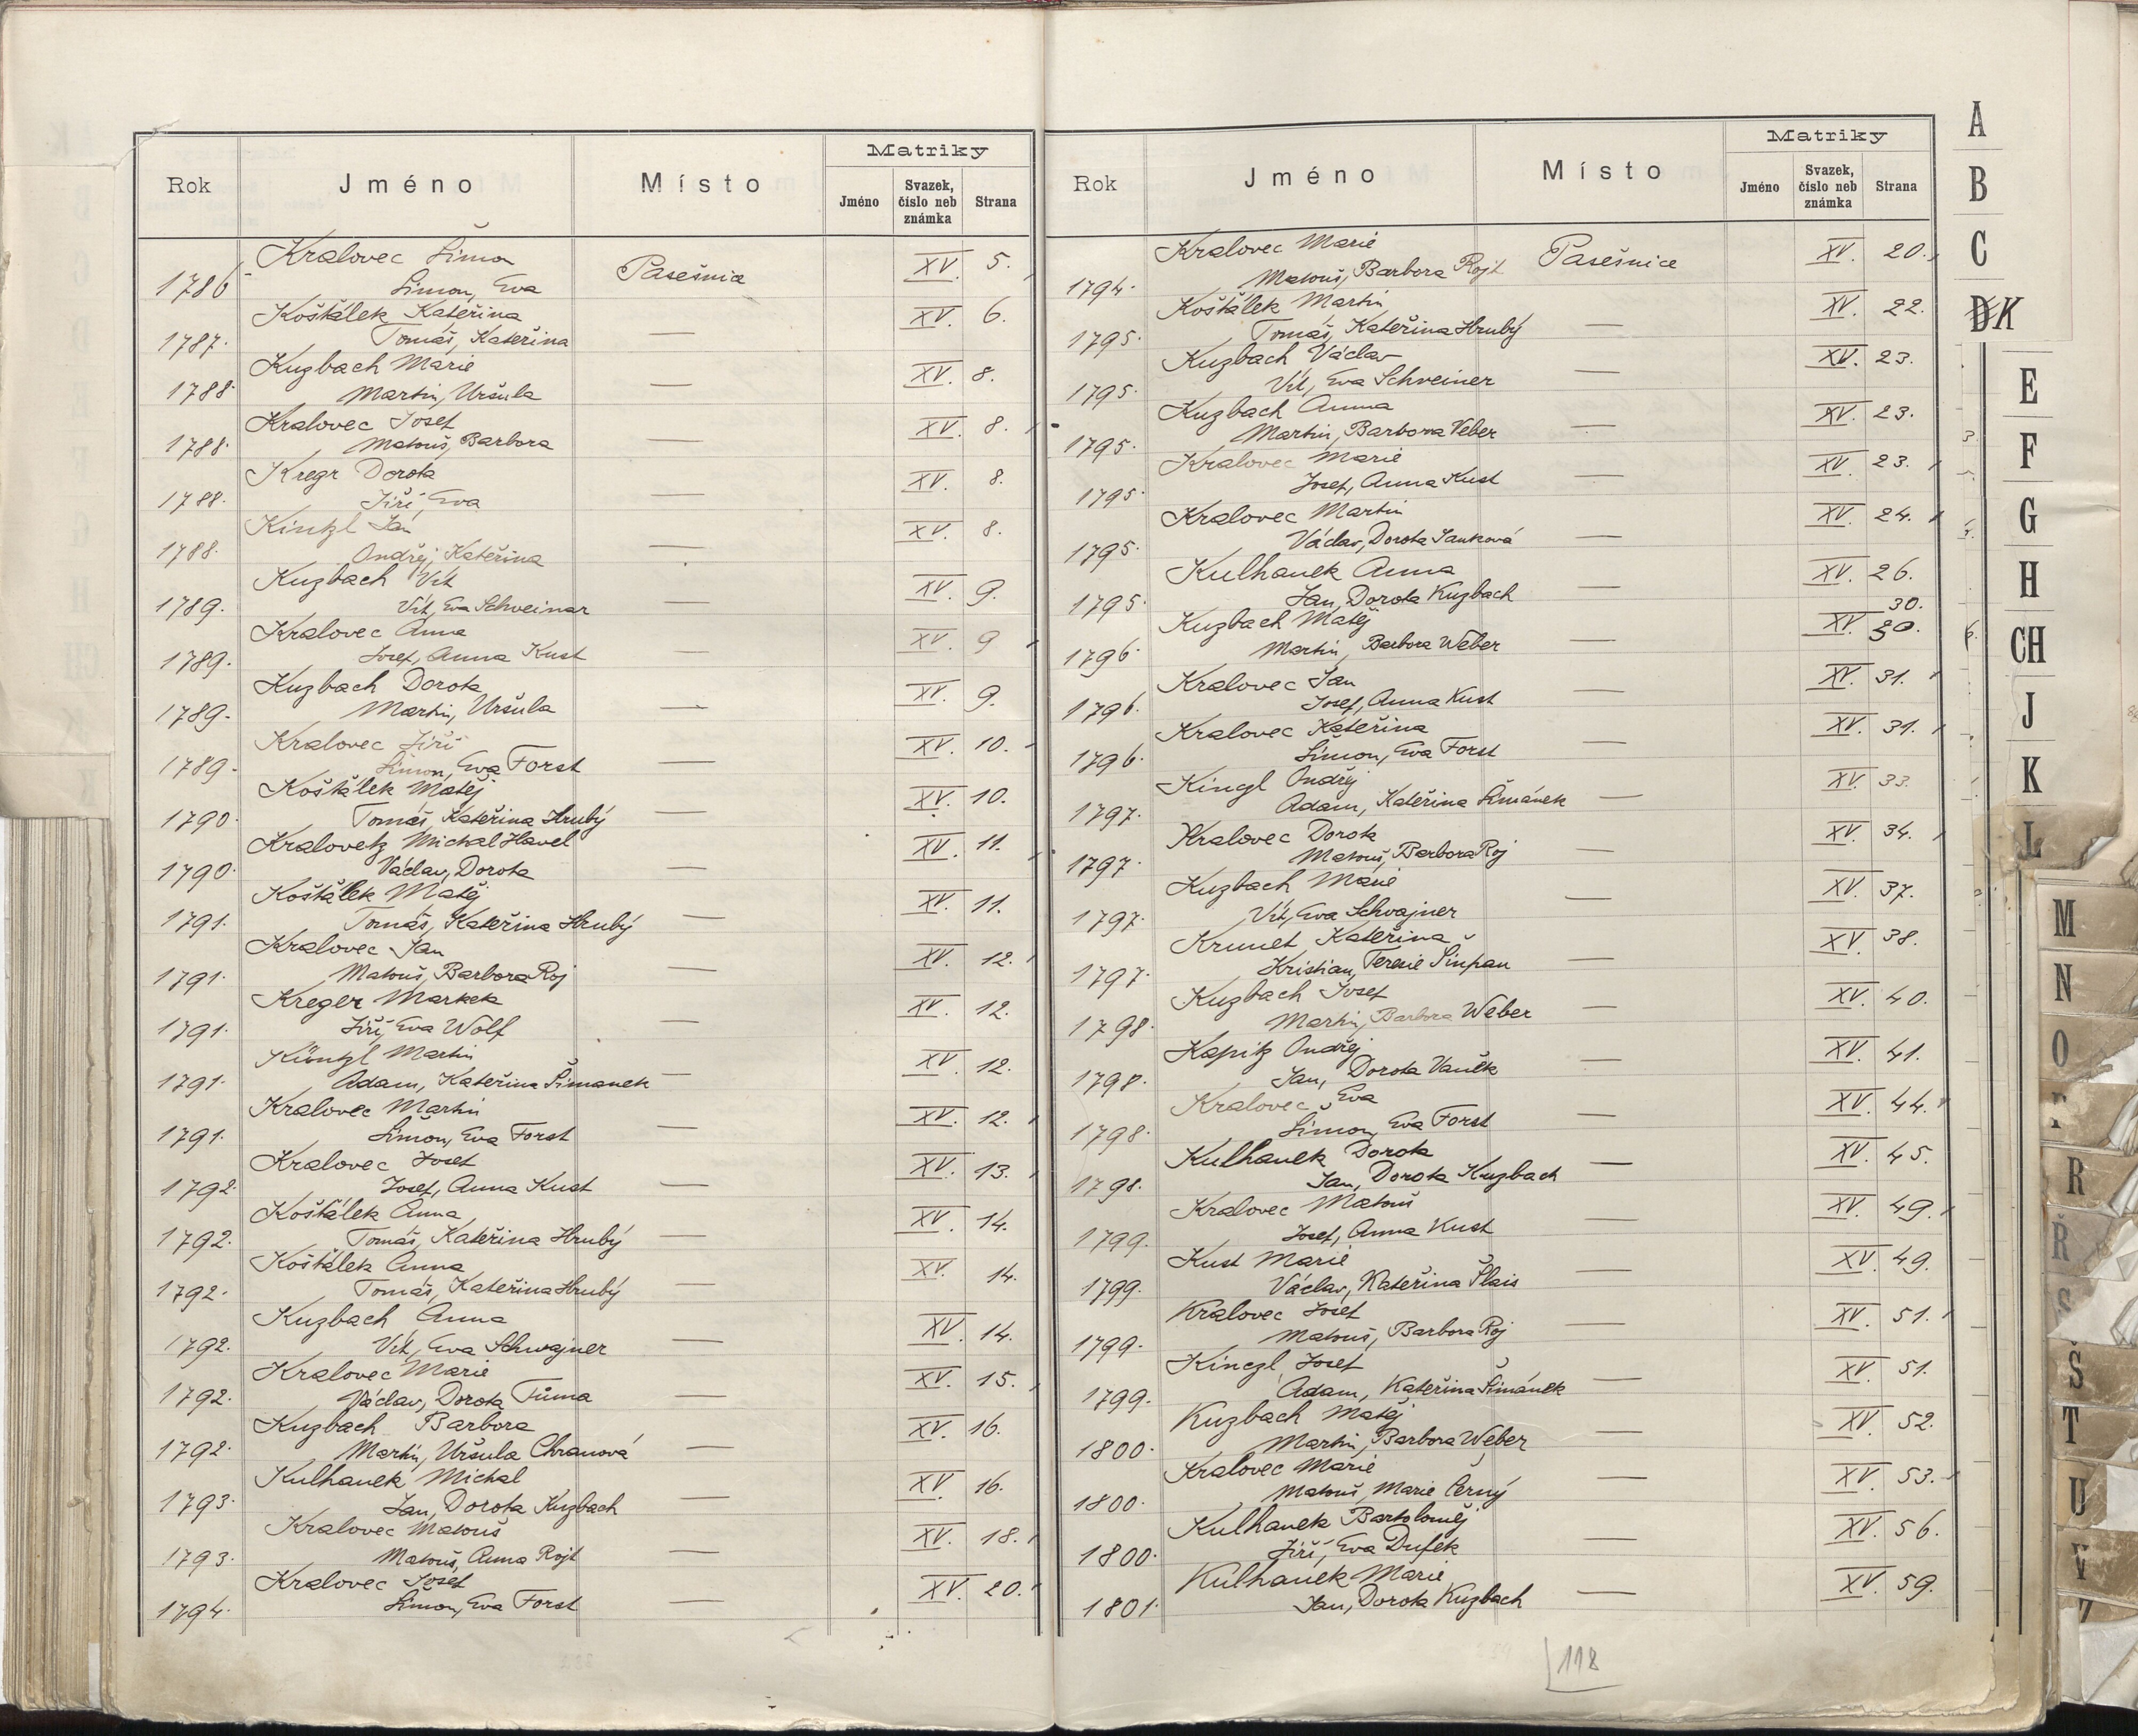 Rok Jméno Místo Matriky
Jméno Svazek, číslo neb známka Strana
Kralovec Šimon
1786 Šimon, Eva Pasešnice XV. 5.
Koštálek Kateřina
1787. Tomáš, Kateřina — XV. 6.
Kuzbach Marie
1788. Martin, Uršula — XV. 8.
Kralovec Josef
1788. Matouš, Barbora — XV. 8.
Kregr Dorota
1788. Jiří, Eva — XV. 8.
Kintzl Jan
1788. Ondřej, Kateřina — XV. 8.
Kuzbach Vít
1789. Vít, Eva Schweinar — XV. 9.
Kralovec Anna
1789. Josef, Anna Kust — XV. 9
Kuzbach Dorota
1789. Martin, Uršula — XV. 9.
Kralovec Jiří
1789. Šimon, Eva Forst — XV. 10.
Koštálek Matěj
1790. Tomáš Kateřina Hrubý — XV. 10.
Kralovetz Michal Havel
1790. Václav, Dorota — XV. 11.
Koštálek Matěj
1791. Tomáš, Kateřina Hrubý — XV. 11.
Kralovec Jan
1791. Matouš, Barbora Roj — XV. 12.
Kreger Markek
1791. Jiří, Eva Wolf — XV. 12.
Küntzl Martin
1791. Adam, Kateřina Šimanek — XV. 12.
Kralovec Martin
1791. Šimon, Eva Forst — XV. 12.
Kralovec Josef
1792. Josef, Anna Kust — XV. 13.
Koštálek Anna
1792. Tomáš, Kateřina Hrubý — XV. 14.
Koštálek Anna
1792. Tomáš, Kateřina Hrubý — XV. 14.
Kuzbach Anna
1792. Vít, Eva Schwajner — XV. 14.
Kralovec Marie
1792. Václav, Dorota Tůma — XV. 15.
Kuzbach Barbora
1792. Martin, Uršula Chranová — XV. 16.
Kulhanek Michal
1793. Jan, Dorota Kuzbach — XV. 16.
Kralovec Matouš
1793. Matouš, Anna Rojt — XV. 18.
Kralovec Josef
1794. Šimon, Eva Forst — XV. 20.
Rok Jméno Místo Matriky
Jméno Svazek, číslo neb známka Strana
Kralovec Marie
1794. Matouš, Barbora Rojt Pasešnice XV. 20.
Koštálek Martin
1795. Tomáš, Kateřina Hrubý — XV. 22.
Kuzbach Václav
1795. Vít, Eva Schveiner — XV. 23.
Kuzbach Anna
1795. Martin, Barbora Veber — XV. 23.
Kralovec Marie
1795. Josef, Anna Kust — XV. 23.
Kralovec Martin
1795. Václav, Dorota Janková — XV. 24.
Kulhanek Anna
1795. Jan, Dorota Kuzbach — XV. 26.
Kuzbach Matěj 30.
1796. Martin, Barbora Weber — XV. 30.
Kralovec Jan
1796. Josef, Anna Kust — XV. 31.
Kralovec Kateřina
1796. Šimon, Eva Forst — XV. 31.
Kingl Ondřej
1797. Adam, Kateřina Šimánek — XV. 33.
Kralovec Dorota
1797. Matouš, Barbora Roj — XV. 34.
Kuzbach Marie
1797. Vít, Eva Schvajner — XV. 37.
Krunet Kateřina
1797. Kristian, Terezie Šinpan — XV. 38.
Kuzbach Josef
1798. Martin, Barbora Weber — XV. 40.
Kapitz Ondřej
1798. Jan, Dorota Vaněk — XV. 41.
Kralovec Eva
1798. Šimon, Eva Forst — XV. 44.
Kulhanek Dorota
1798. Jan, Dorota Kuzbach — XV. 45.
Kralovec Matouš
1799. Josef, Anna Kust — XV. 49.
Kust Marie
1799. Václav, Kateřina Šlais — XV. 49.
Kralovec Josef
1799. Matouš, Barbora Roj — XV. 51.
Kinczl Josef
1799. Adam, Kateřina Šimánek — XV. 51.
Kuzbach Matěj
1800. Martin, Barbora Weber — XV. 52.
Kralovec Marie
1800. Matouš, Marie Černý — XV. 53.
Kulhanek Bartoloměj
1800. Jiří, Eva Dufek — XV. 56.
Kulhanek Marie
1801. Jan, Dorota Kuzbach — XV. 59.
118
A
B
C
D K
E
F
G
H
CH
J
K
L
M
N
O
P
R
Ř
S
Š
T
U
V
Z